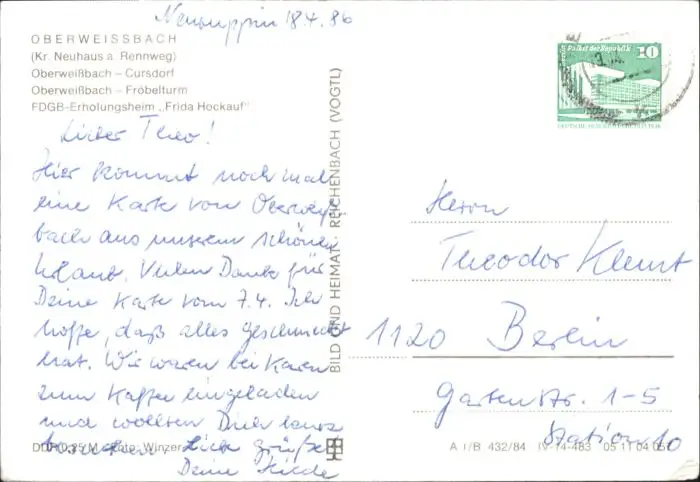 Neuruppin 18.4.86
OBERWEISSBACH
(Kr. Neuhaus a. Rennweg)
Oberweißbach – Cursdorf
Oberweißbach – Fröbelturm
FDGB-Erholungsheim „Frida Hockauf"
Lieber Theo!
Hier kommt noch mal
eine Karte vom Oberweiß-
bach aus unserem schönen
Urlaub. Vielen Dank für
Deine Karte vom 7.4. Ich
hoffe, daß alles geschmeckt
hat. Wir waren bei Karen
zum Kaffee eingeladen
und wollten Dich kurz
Liebe Grüße
Deine Hilde
DDR 0,25 M Foto: Winzer
BILD UND HEIMAT · REICHENBACH (VOGTL)
Palast der Republik
10
DEUTSCHE DEMOKRATISCHE REPUBLIK
Herrn
Theodor Klemt
1120 Berlin
Gartenstr. 1-5
Station 10
A 1/B 432/84 IV-14-483 05 11 04 051